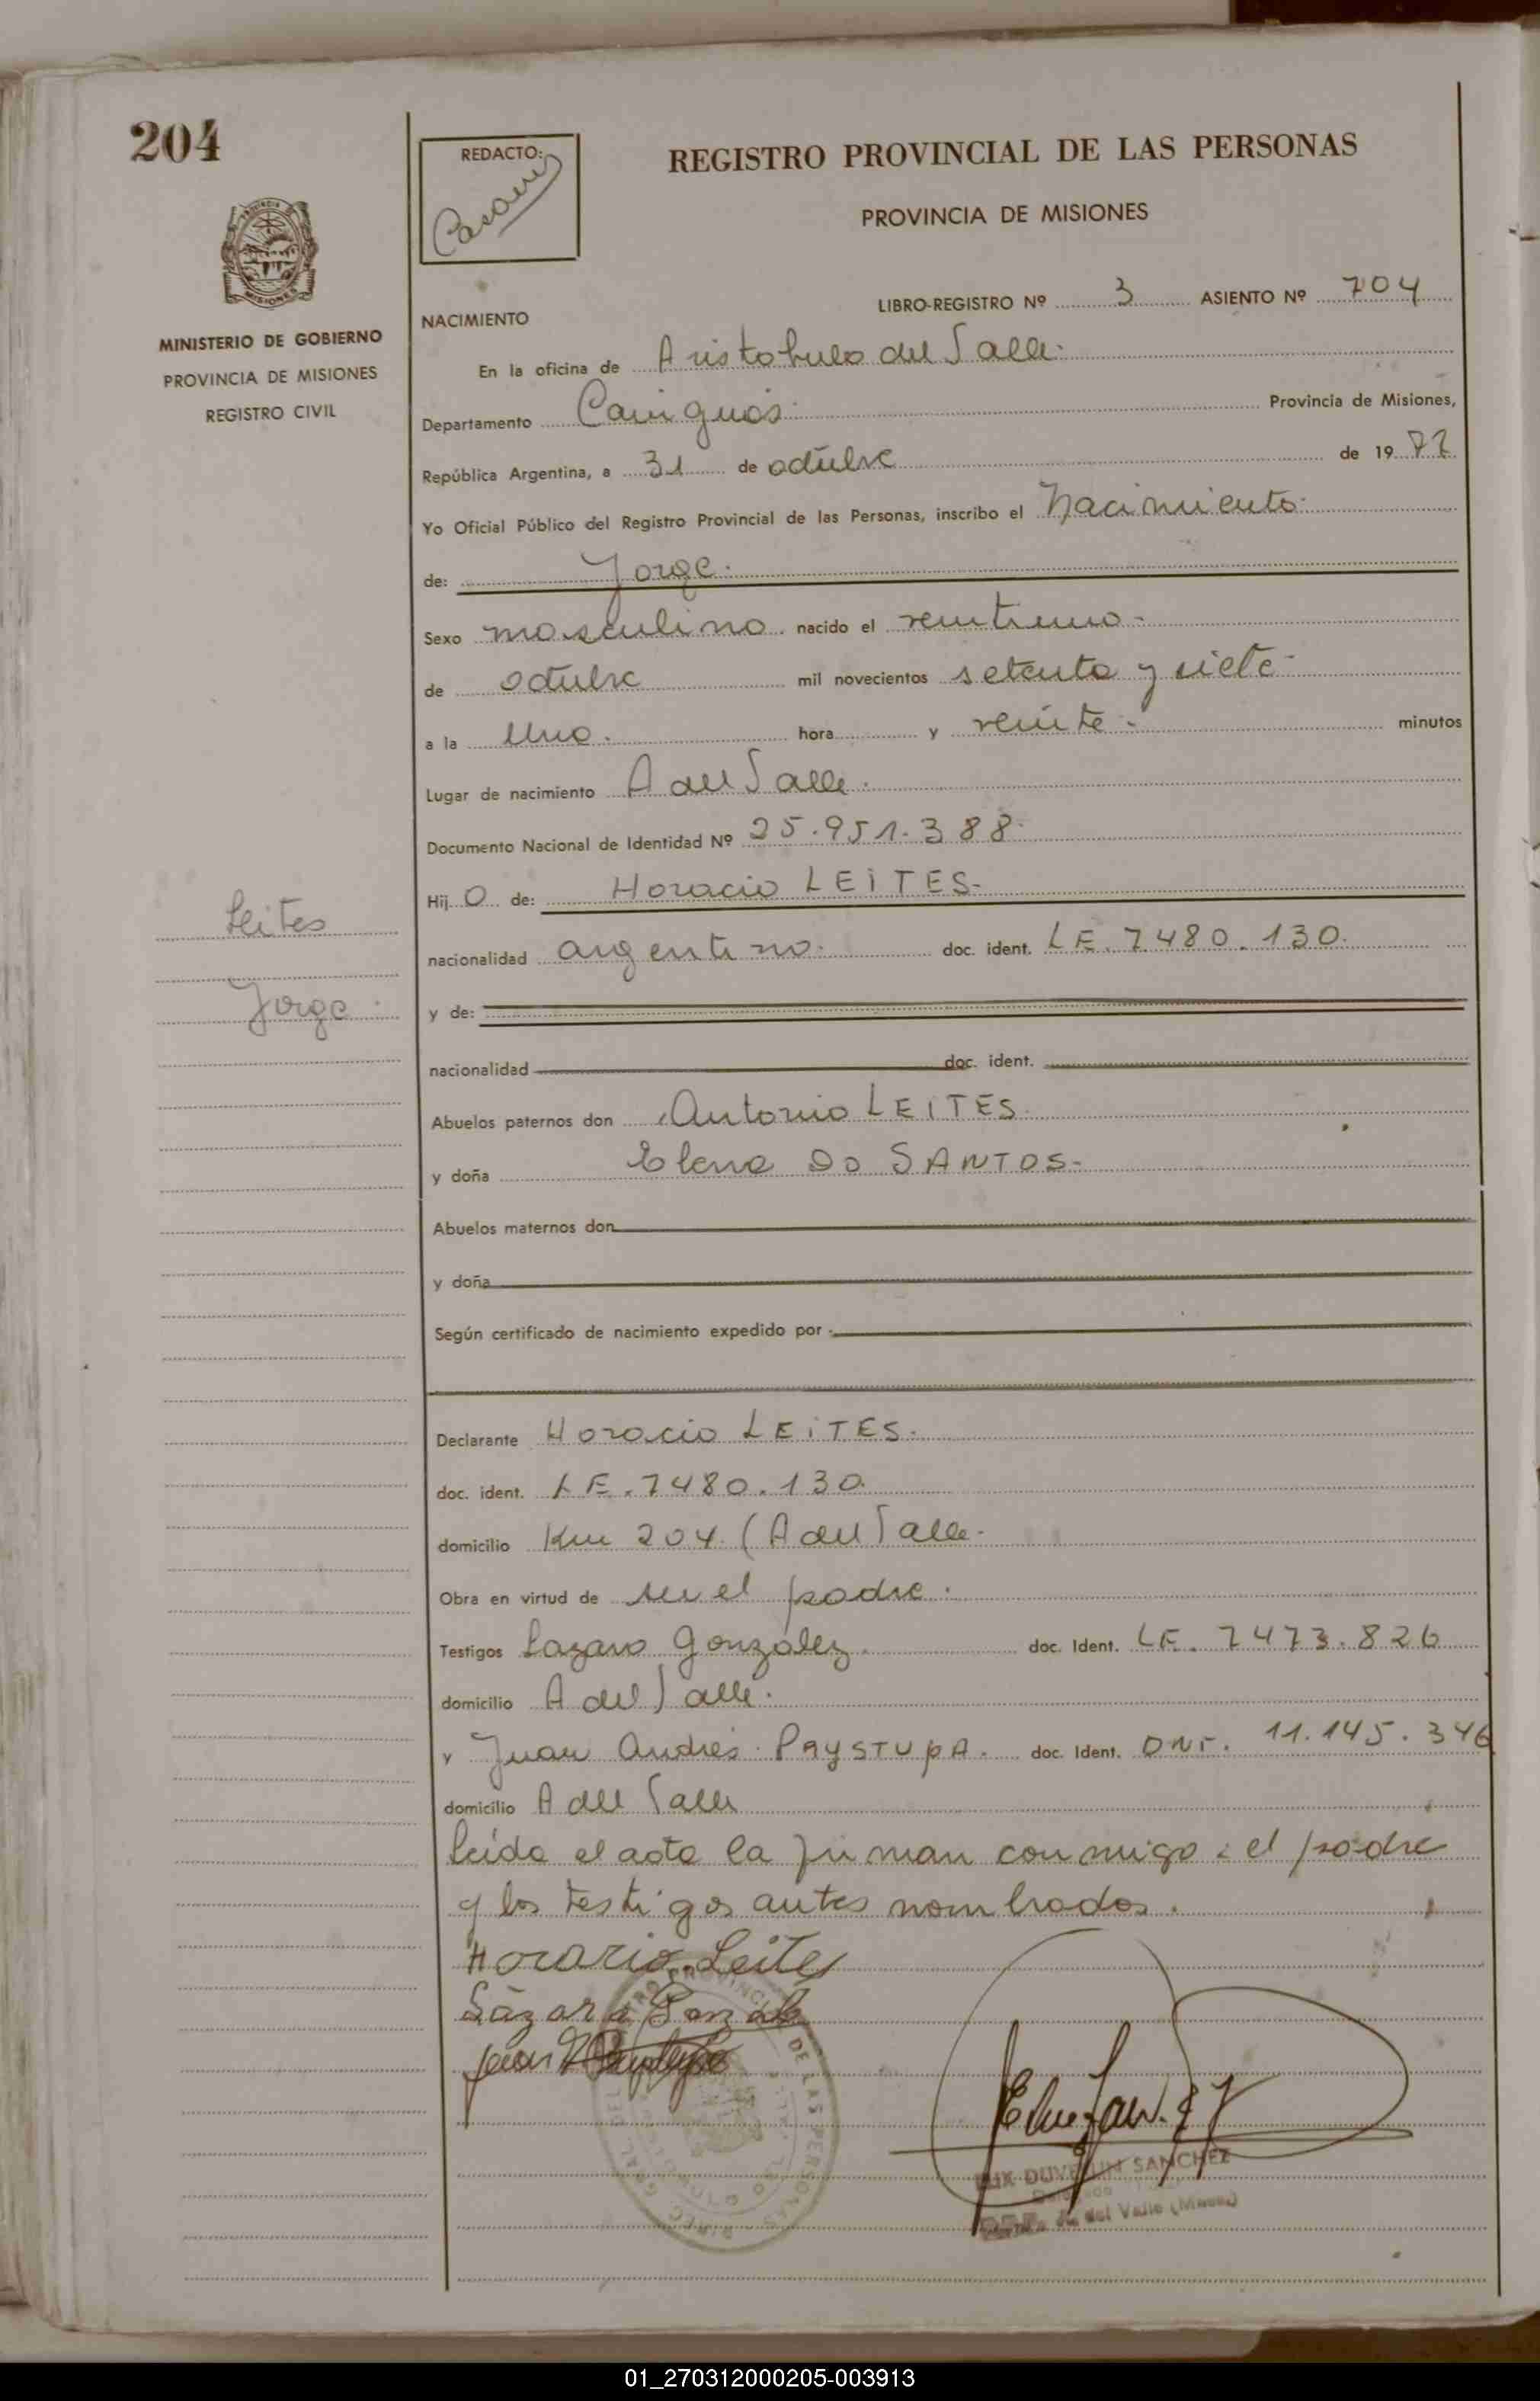 204
REDACTO:
REGISTRO PROVINCIAL DE LAS PERSONAS
PROVINCIA DE MISIONES
MISIONES
MINISTERIO DE GOBIERNO
PROVINCIA DE MISIONES
REGISTRO CIVIL
LIBRO-REGISTRO Nº 3 ASIENTO Nº 704
NACIMIENTO
En la oficina de Aristobulo del Valle.
Departamento Cainguás. Provincia de Misiones,
República Argentina, a 31 de octubre de 19 77
Yo Oficial Público del Registro Provincial de las Personas, inscribo el Nacimiento.
de: Jorge.
Sexo masculino. nacido el veintiuno -
de octubre mil novecientos setenta y siete -
a la Una. hora y veinte - minutos
Lugar de nacimiento A del Valle.
Documento Nacional de Identidad Nº 25.951.388.
Hij O de: Horacio LEITES-
nacionalidad argentino. doc. ident. LE. 7480.130.
y de:
nacionalidad doc. ident.
Leites
Jorge.
Abuelos paternos don Antonio LEITES
y doña Elena DO SANTOS-
Abuelos maternos don
y doña
Según certificado de nacimiento expedido por
Declarante Horacio LEITES.
doc. ident. LE. 7480.130.
domicilio Km 204. (A del Valle-
Obra en virtud de ser el padre.
Testigos Lazaro González. doc. Ident. LE. 7473.826
domicilio A del Valle.
y Juan Andrés PAYSTUPA. doc. Ident. DNI. 11.145.346
domicilio A del Valle
leída el acta la firman conmigo: el padre
y los testigos antes nombrados.
Horacio Leites
Lázaro Gonzale
Juan
SANCHEZ
A. del Valle (Mnes)
01_270312000205-003913